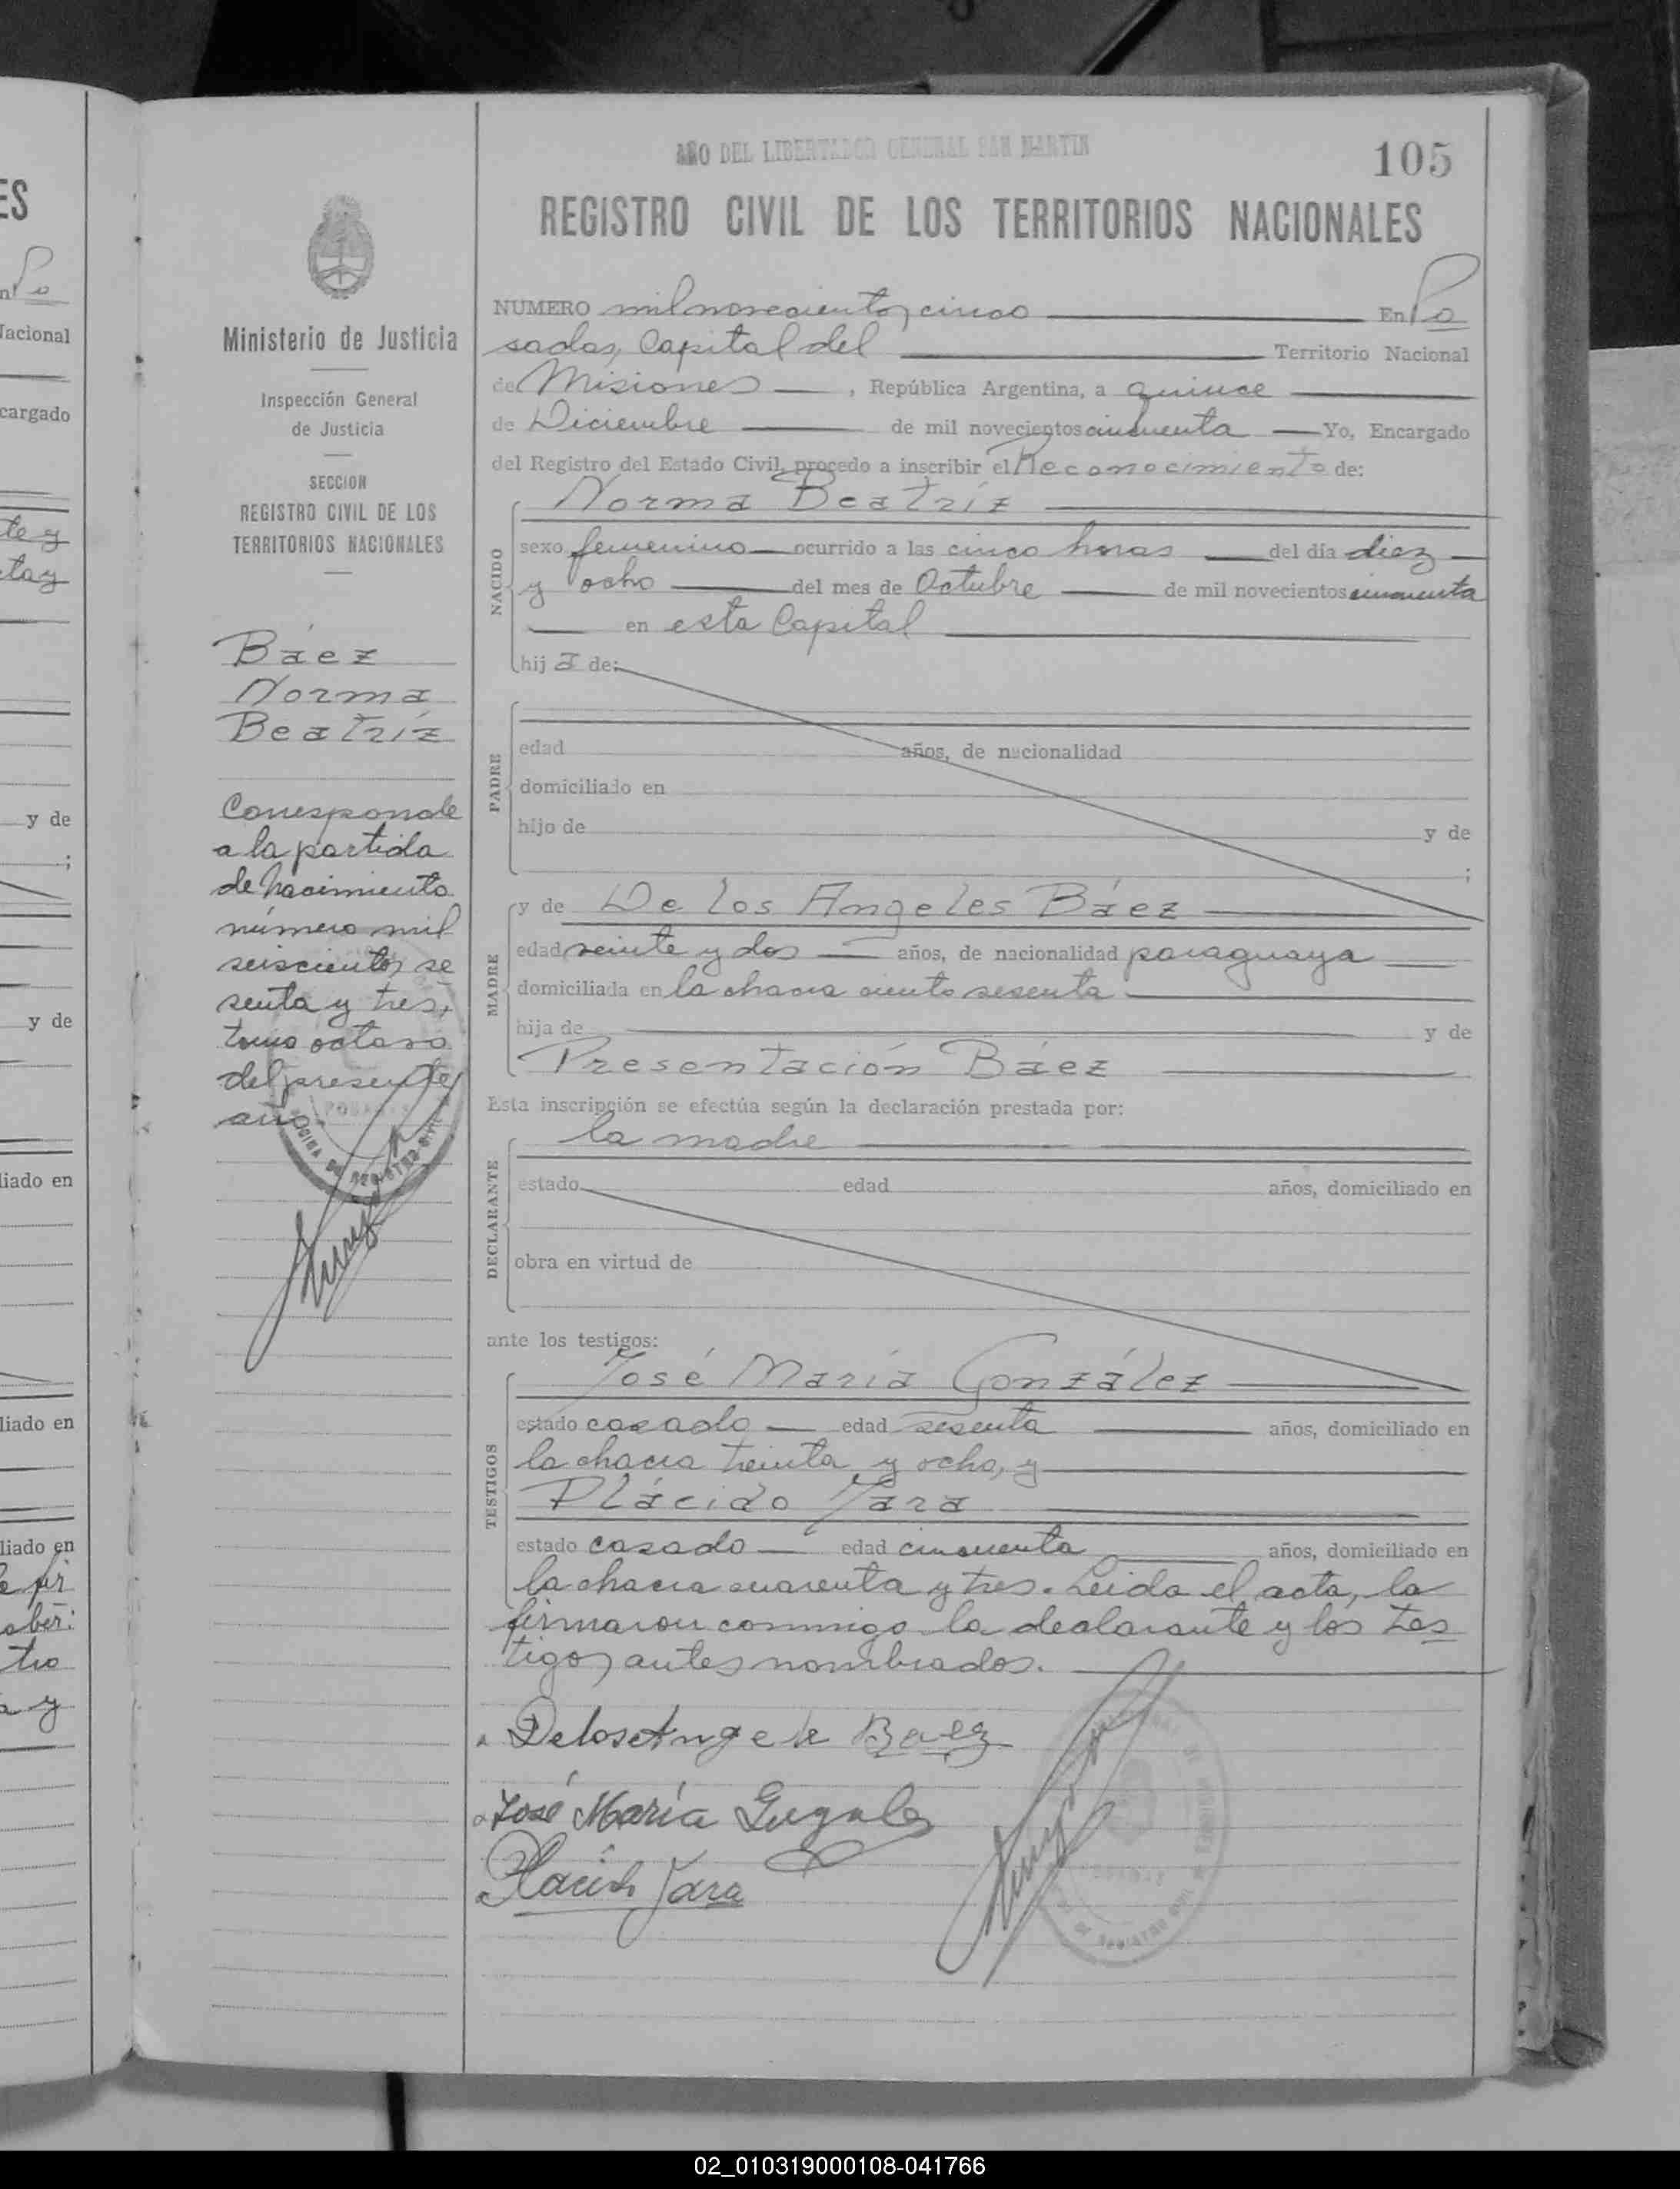 ES
Po
Nacional
cargado
te y
ta y
y de
;
y de
liado en
liado en
liado en
tro
a y
Ministerio de Justicia
Inspección General
de Justicia
SECCION
REGISTRO CIVIL DE LOS
TERRITORIOS NACIONALES
Báez
Norma
Beatríz
Corresponde
a la partida
de Nacimiento
número mil
seiscientos se
senta y tres,
tomo octavo
del presente
año.
POSADAS
OFICINA DE REGISTRO CIVIL
AÑO DEL LIBERTADOR GENERAL SAN MARTIN
105
REGISTRO CIVIL DE LOS TERRITORIOS NACIONALES
NUMERO mil novecientos cinco En Po
sadas, Capital del Territorio Nacional
de Misiones, República Argentina, a quince
de Diciembre de mil novecientos cincuenta Yo, Encargado
del Registro del Estado Civil, procedo a inscribir el Reconocimiento de:
Norma Beatríz
NACIDO
sexo femenino ocurrido a las cinco horas del día diez
y ocho del mes de Octubre de mil novecientos cincuenta
en esta Capital
hij a de:
PADRE
edad años, de nacionalidad
domiciliado en
hijo de y de
;
y de De los Angeles Báez
MADRE
edad veinte y dos años, de nacionalidad paraguaya
domiciliada en la chacra ciento sesenta
hija de y de
Presentación Báez
Esta inscripción se efectúa según la declaración prestada por:
la madre
DECLARANTE
estado edad años, domiciliado en
obra en virtud de
ante los testigos:
José María González
TESTIGOS
estado casado edad sesenta años, domiciliado en
la chacra treinta y ocho, y
Plácido Jara
estado casado edad cincuenta años, domiciliado en
la chacra cuarenta y tres. Leida el acta, la
firmaron conmigo la declarante y los tes
tigos antes nombrados.
De los Angele Baez
José María
Placido Jara
02_010319000108-041766